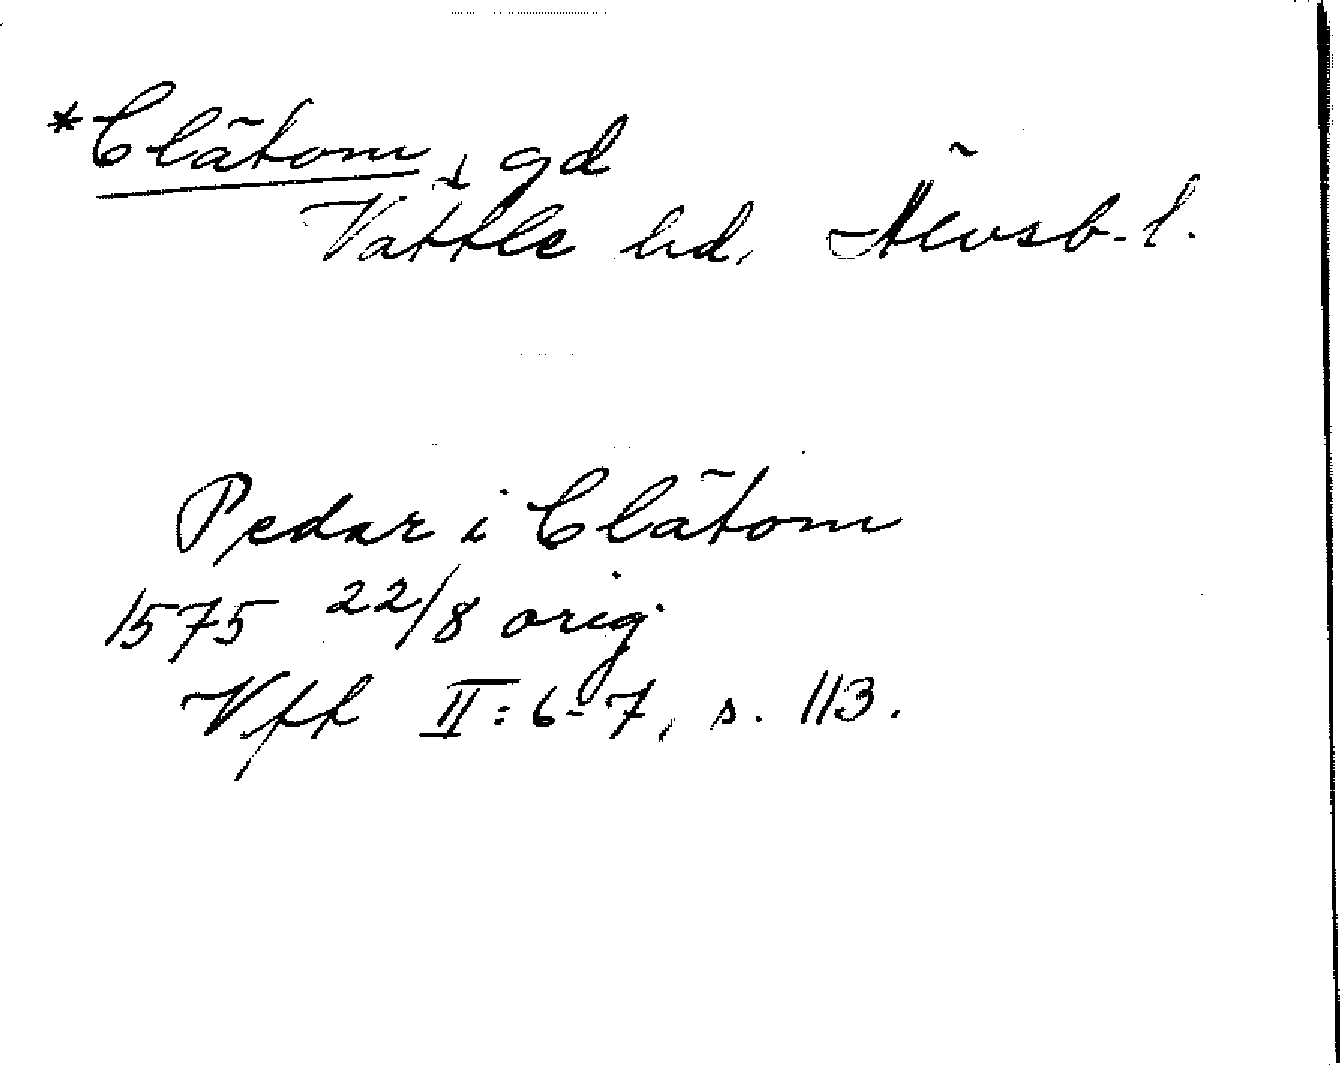 *Clätom, gd
Vättle hd, Älvsb. l.
Pedar i Clätom
1575 22/8 orig
Vff II: 6-7, s. 113.